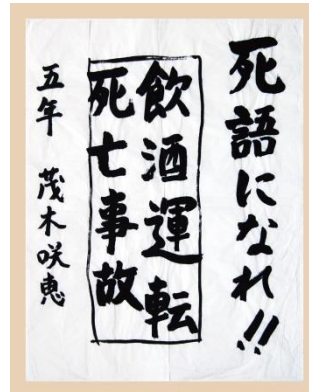 死語になれ!!
飲酒運転
死亡事故
五年 茂木咲恵